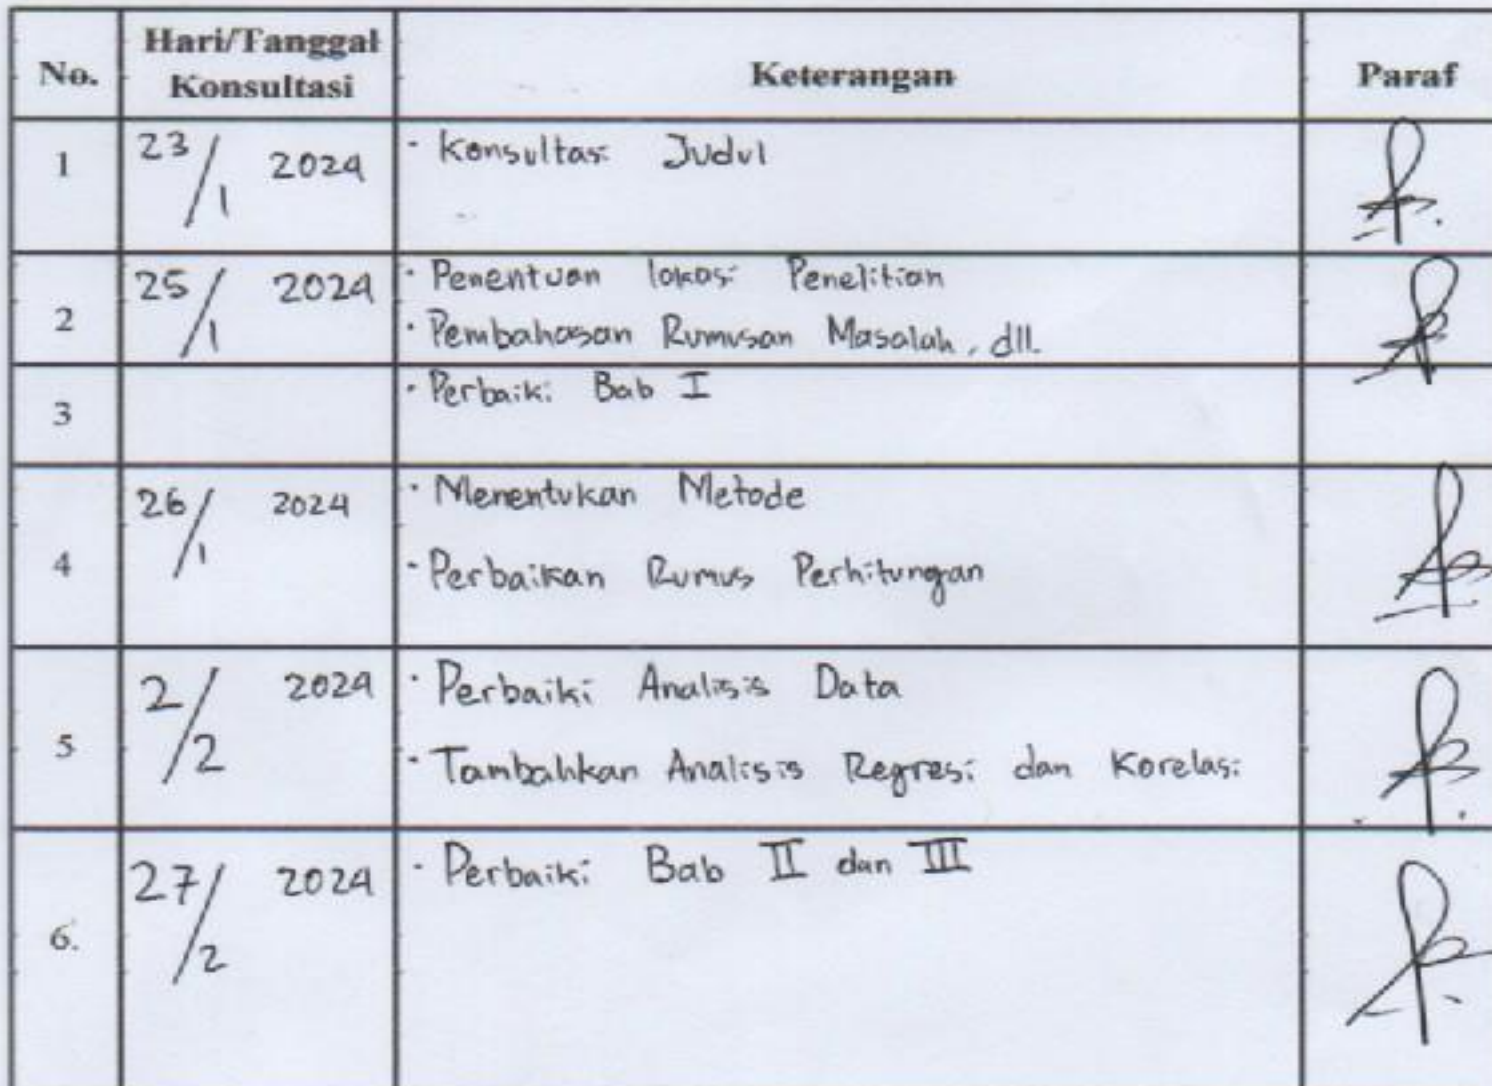 No. Hari/Tanggal Konsultasi Keterangan Paraf
1 23/1 2024 · Konsultasi Judul
2 25/1 2024 · Penentuan lokasi Penelitian
· Pembahasan Rumusan Masalah, dll.
3 · Perbaiki Bab I
4 26/1 2024 · Menentukan Metode
· Perbaikan Rumus Perhitungan
5 2/2 2024 · Perbaiki Analisis Data
· Tambahkan Analisis Regresi dan Korelasi
6. 27/2 2024 · Perbaiki Bab II dan III